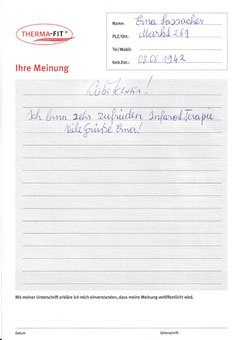 THERMA-FIT®
Name: Erna Sassacher
PLZ/Ort: Markt 269
Tel/Mobil:
Geb.Dat.: 03.06.1942
Ihre Meinung
Liebe Kerstin!
Ich binn zehr zufrieden Infarod Terapie
Viele Grüße Erner!
Mit meiner Unterschrift erkläre ich mich einverstanden, dass meine Meinung veröffentlicht wird.
Datum
Unterschrift